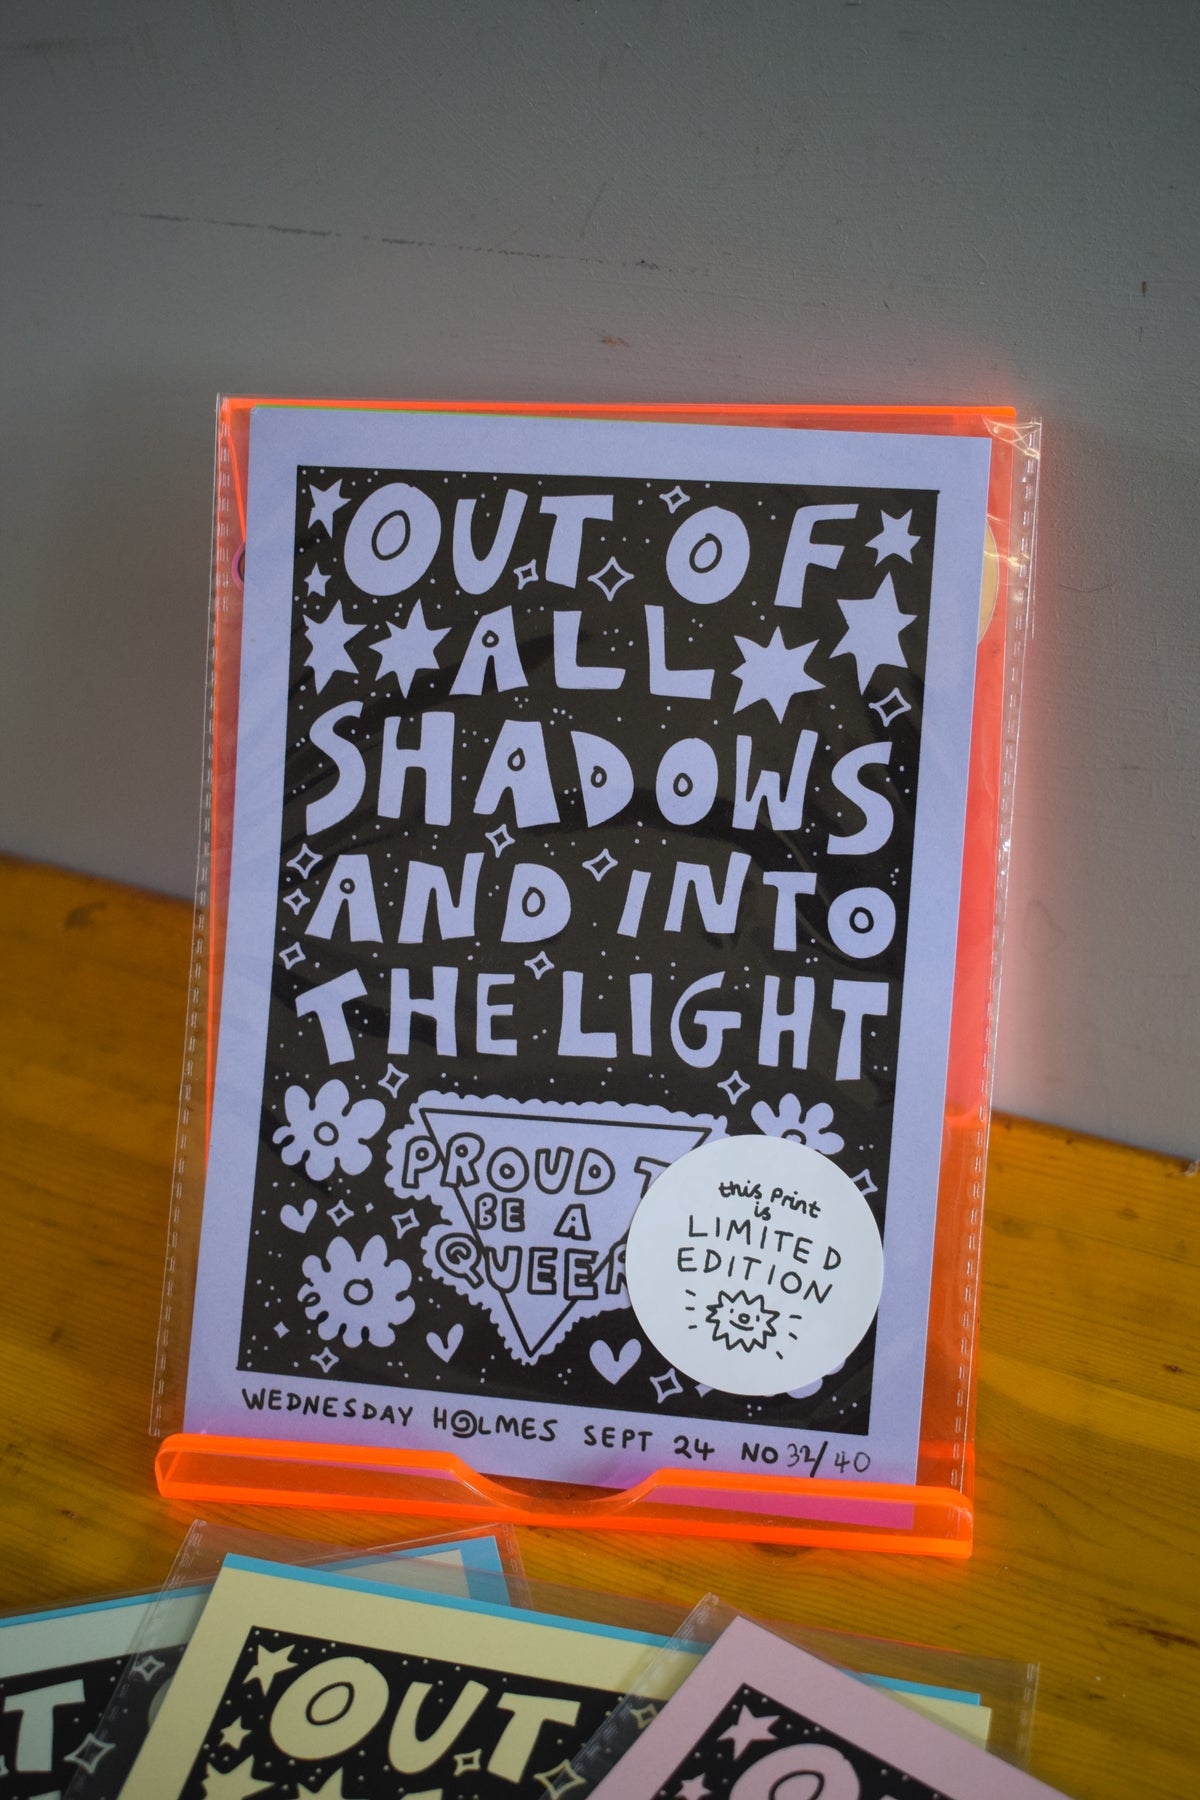 OUT OF
ALL
SHADOWS
AND INTO
THE LIGHT
PROUD T
BE A
QUEER
this print
is
LIMITED
EDITION
WEDNESDAY HOLMES SEPT 24 NO 32/40
T
OUT
O